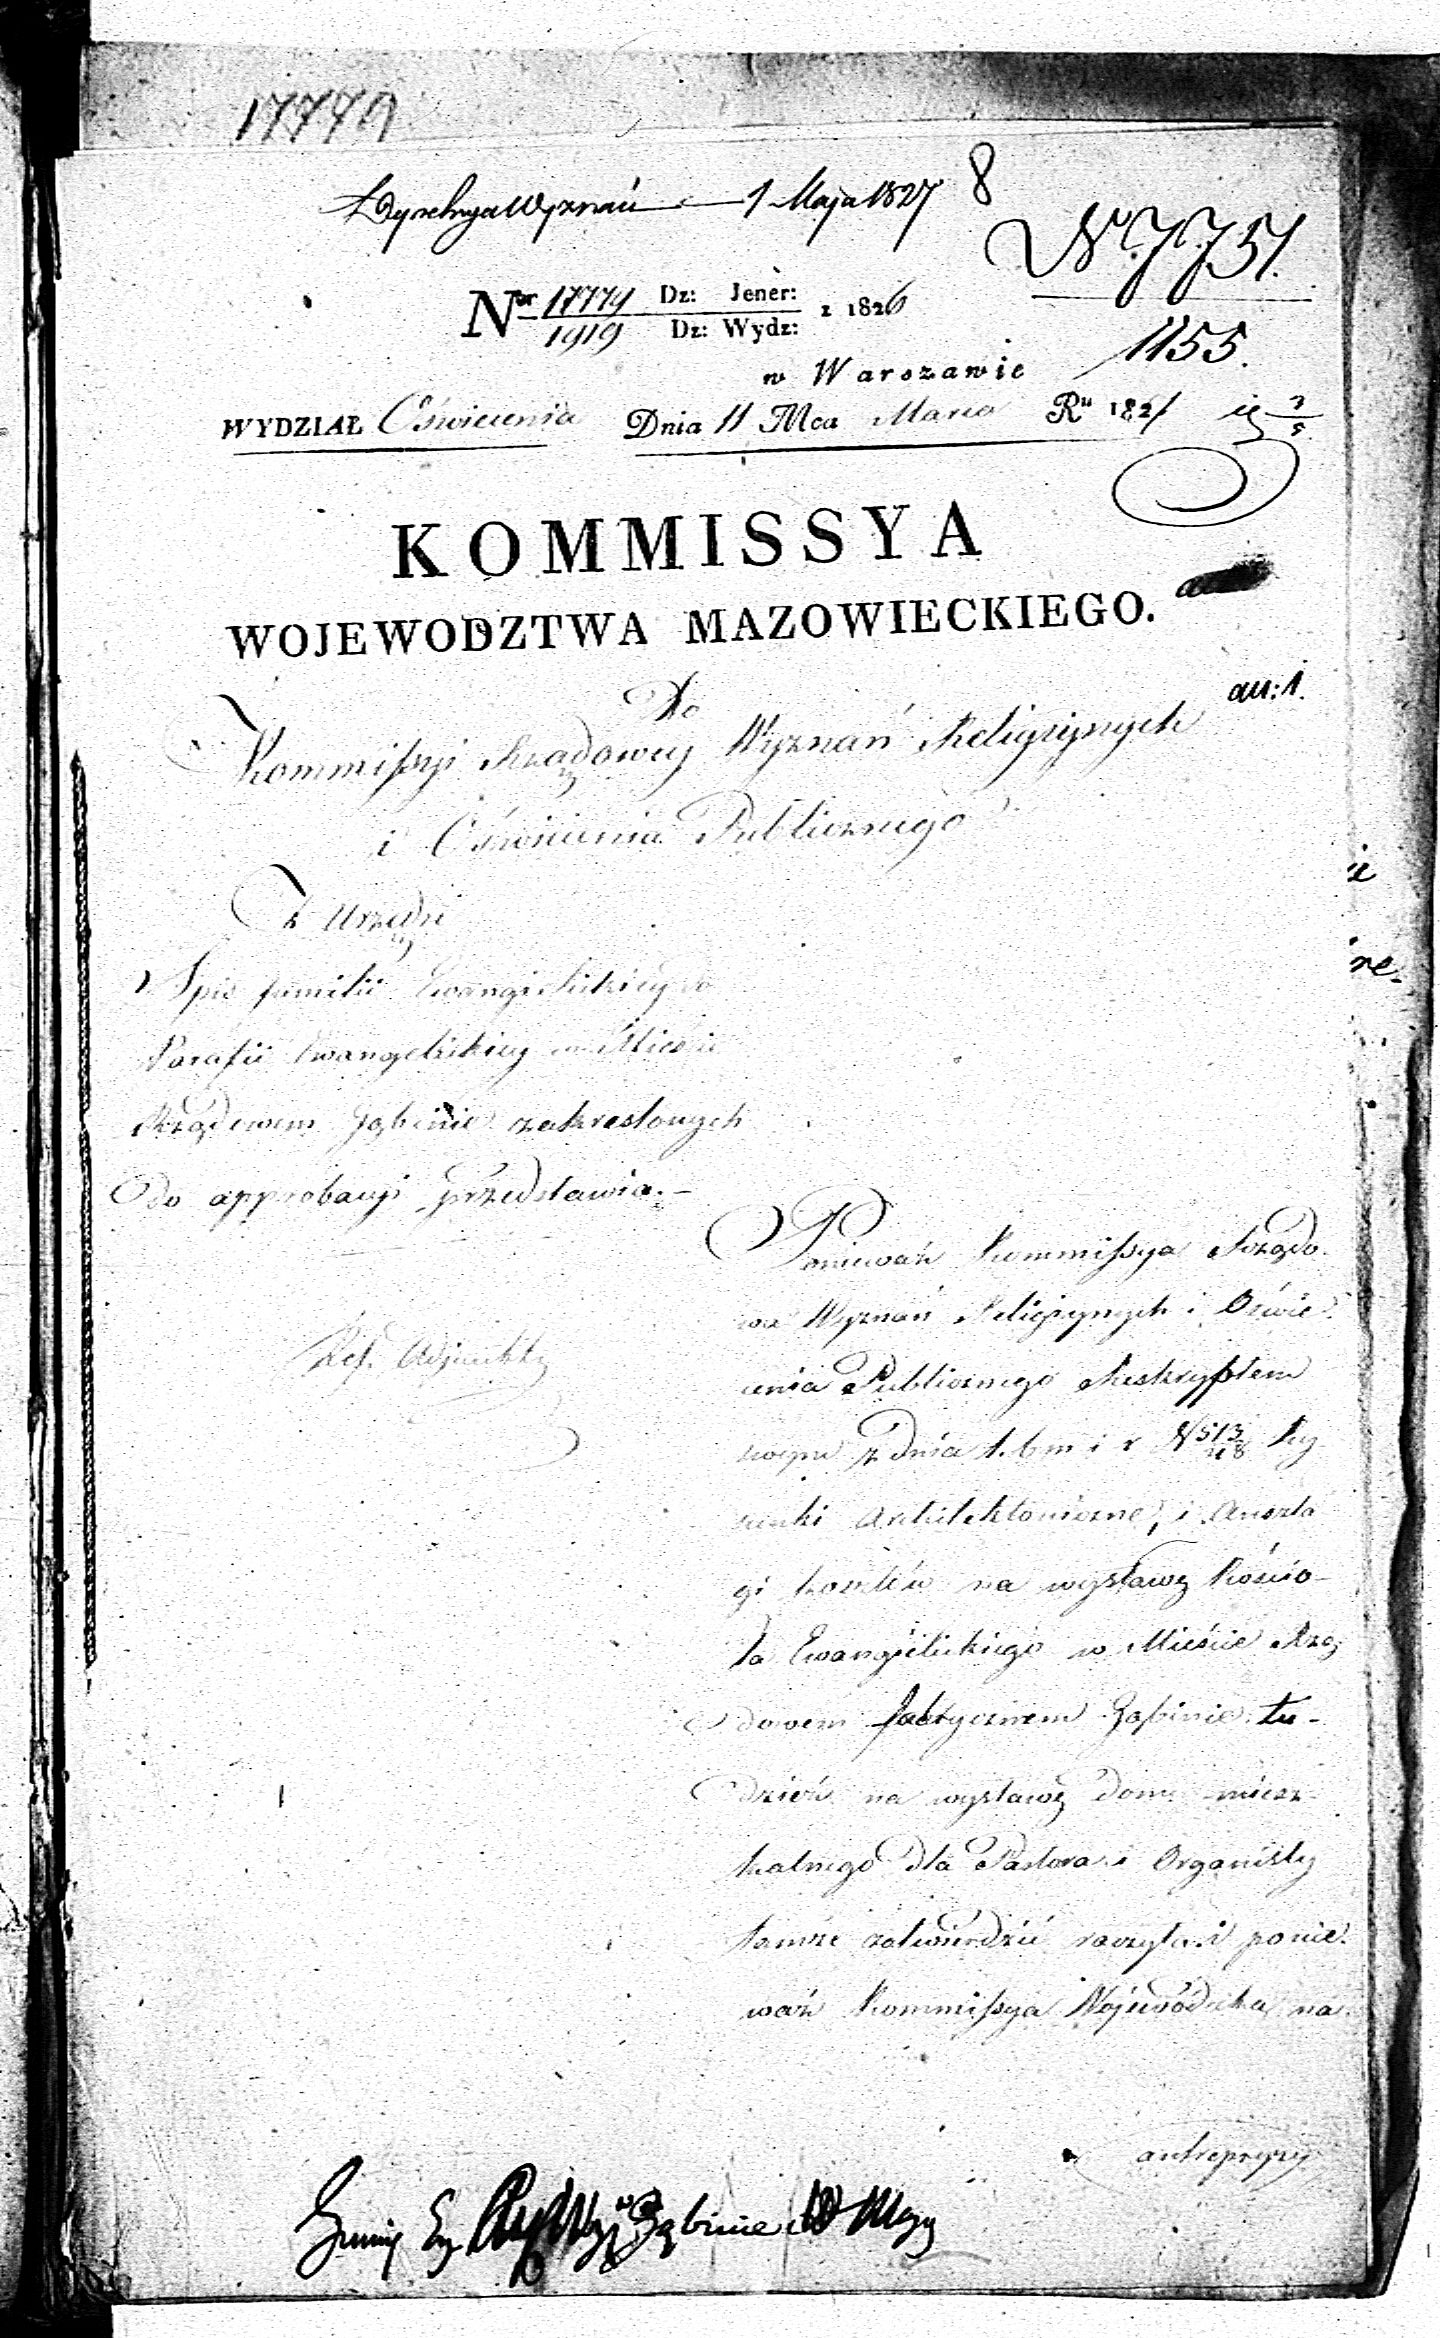 17779
Dyrekcya Wyznań — 1 Maja 1827
8
Nr 7751.
1155.
Nor 17779 Dz: Jener:
1919 Dz: Wydz: z 1826
w Warszawie
WYDZIAŁ Oświecenia Dnia 11 Mca Marca Ru 1827
KOMMISSYA
WOJEWODZTWA MAZOWIECKIEGO.
an: 1.
Do
Kommissyi Rządowey Wyznań Religiynych
i Oświecenia Publicznego
Z Urzędu
Spis familii Ewangielickiey do
Parafii Ewangelickiey w Mieście
Rządowem Gąbinie zakreslonych
do approbacyi przedstawia. –
Ref. Adjunkt
Poniewaz Kommissya Rządo
wa Wyznań Religiynych i Oświe
cenia Publicznego Reskryptem
swym z dnia 1. b m i r N 513/418 Ry
sunki Architektoniczne, i Anszla
gi kosztów na wystawę Kościo-
ła Ewangielickiego w Mieście Rzą
dowem fabrycznem Gąbinie tu-
dzież na wystawę domu miesz
kalnego dla Pastora i Organisty
tamże zatwierdzić raczyła i ponie
waż Kommissya Woiewódzka na
antrepryzy
Gąbinie